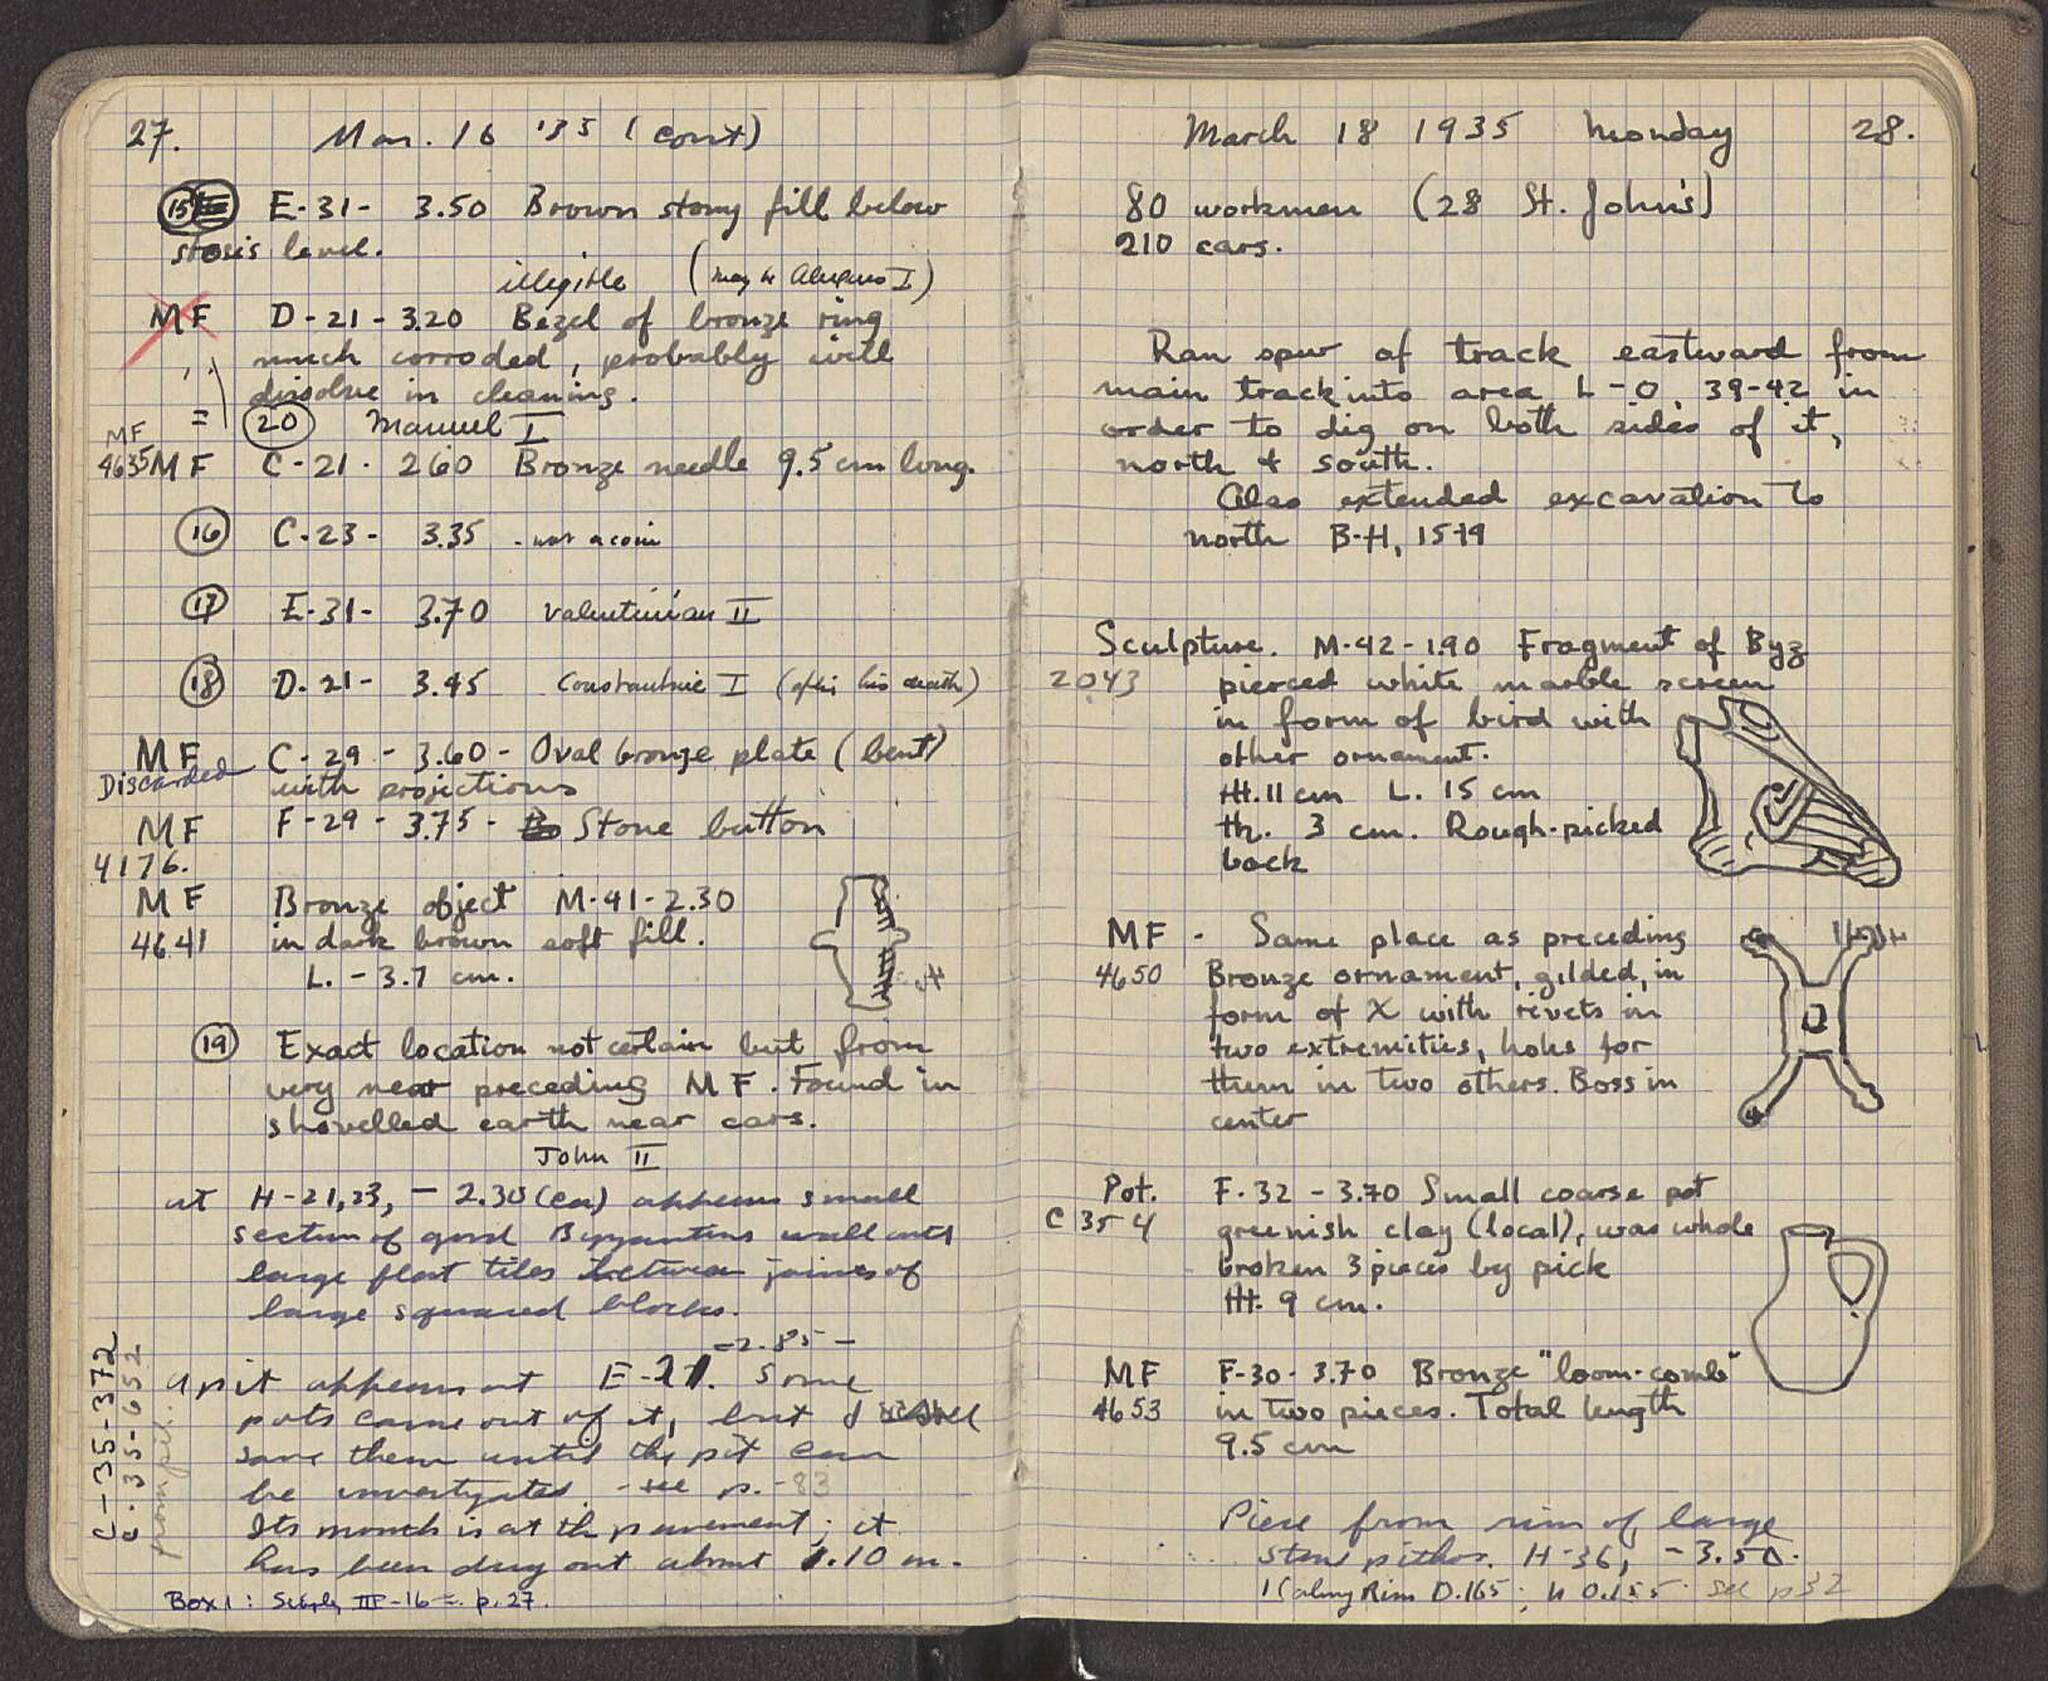 27. Mar. 16 '35 (cont)
15 E-31- 3.50 Brown stony fill below
stosis level.
illegible (may be Alexius I)
MF D-21-3.20 Bezel of bronze ring
much corroded, probably will
dissolve in cleaning.
= 20 Manuel I
MF
4635 MF C-21- 2.60 Bronze needle 9.5 cm long.
16 C-23- 3.35 - not a coin
17 E-31- 3.70 Valentinian II
18 D-21- 3.45 Constantine I (after his death)
MF C-29-3.60- Oval bronze plate (bent)
Discarded with projections
MF F-29-3.75- Stone button
4176.
MF Bronze object M-41-2.30
4641 in dark brown soft fill.
L. - 3.7 cm.
19 Exact location not certain but from
very near preceding MF. Found in
shovelled earth near cars.
John II
at H-21,23, - 2.30 (ca) appears small
section of good Byzantine wall with
large flat tiles between joints of
large squared blocks.
-2.85-
A pit appears at E-21. Some
pots came out of it, but I
save them until the pit can
be investigated. - see p. - 83
Its mouth is at the pavement; it
has been dug out about 1.10 m.
C-35-372
C-35-652
from pit.
Box 1: III-16 = p. 27.
March 18 1935 Monday 28.
80 workmen (28 St. John's)
210 cars.
Ran spur of track eastward from
main track into area L-O, 39-42 in
order to dig on both sides of it,
north & south.
Also extended excavation to
north B-H, 15-19
Sculpture. M-42-1.90 Fragment of Byz
2043 pierced white marble screen
in form of bird with
other ornament.
Ht. 11 cm L. 15 cm
th. 3 cm. Rough-picked
back
MF - Same place as preceding
4650 Bronze ornament, gilded, in
form of X with rivets in
two extremities, holes for
them in two others. Boss in
center
Pot. F-32-3.70 Small coarse pot
C 35 4 greenish clay (local), was whole
broken 3 pieces by pick
Ht. 9 cm.
MF F-30-3.70 Bronze "loom-comb"
4653 in two pieces. Total length
9.5 cm
Piece from rim of large
stone pithos. H-36, -3.50.
(along Rim 0.165; h 0.155 see p 32